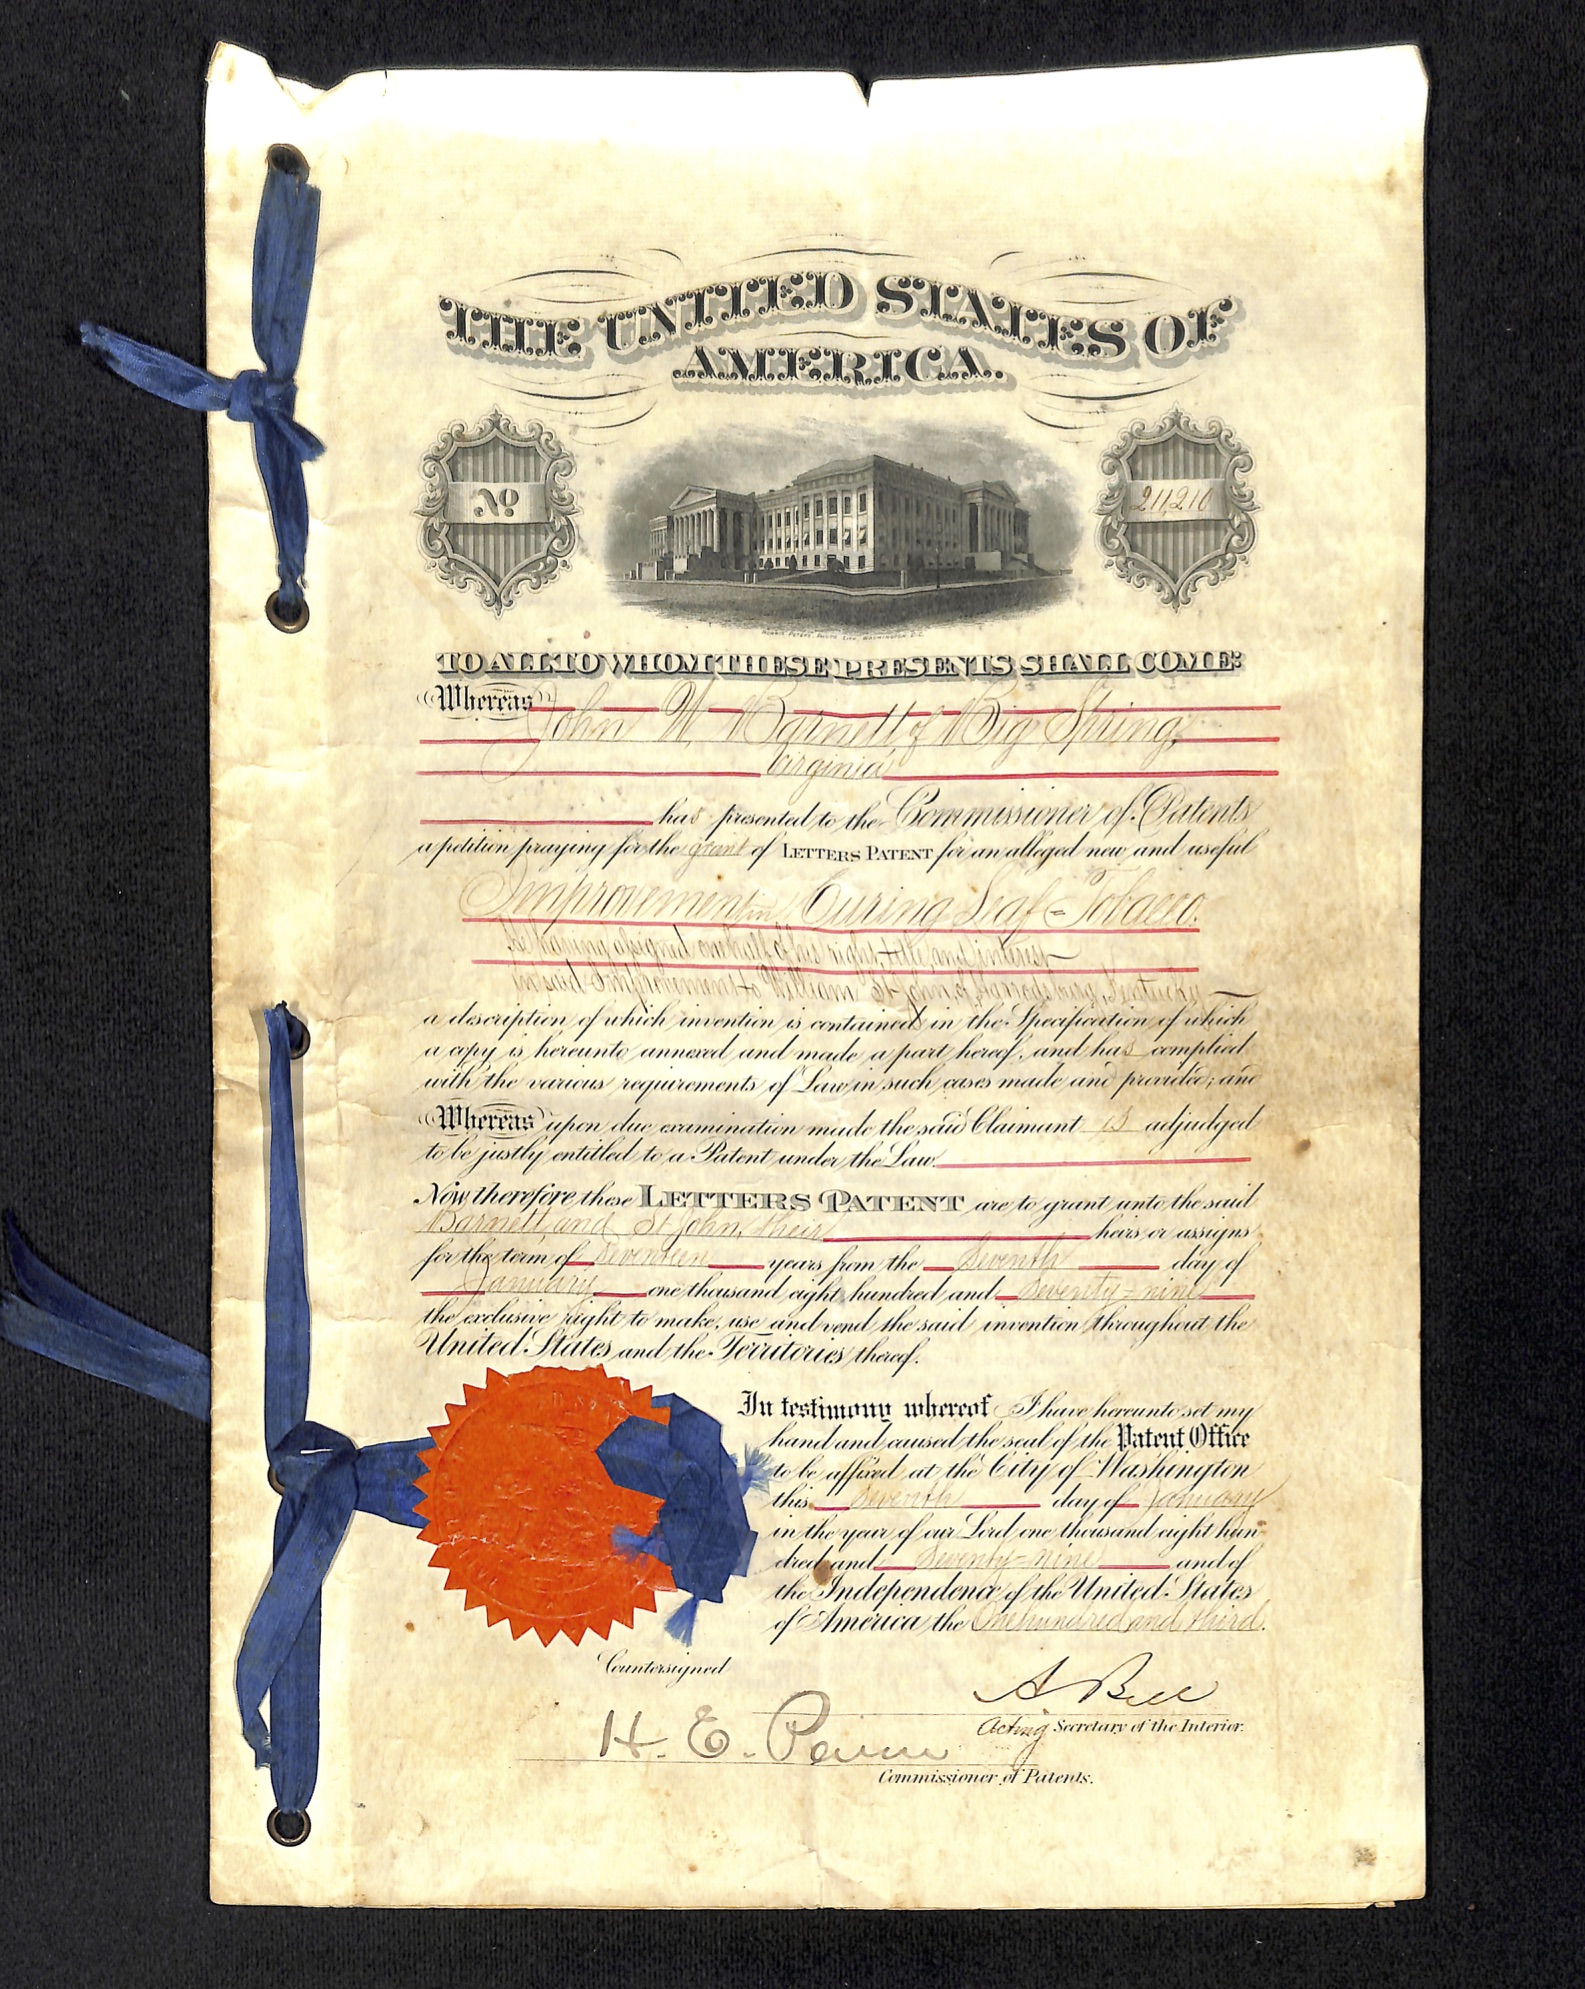 THE UNITED STATES OF
AMERICA.
No
211,210
TO ALL TO WHOM THESE PRESENTS SHALL COME:
Whereas John W. Barnett of Big Spring,
Virginia
has presented to the Commissioner of Patents
a petition praying for the grant of LETTERS PATENT for an alleged new and useful
Improvement in Curing Leaf-Tobacco.
he having assigned one half of his right, title, and interest
in said Improvement to William St John, of Kentucky
a description of which invention is contained in the Specification of which
a copy is hereunto annexed and made a part hereof, and has complied
with the various requirements of Law in such cases made and provided; and
Whereas upon due examination made the said Claimant is adjudged
to be justly entitled to a Patent under the Law.
Now therefore these LETTERS PATENT are to grant unto the said
Barnett, and St John, their heirs or assigns
for the term of Seventeen years from the Seventh day of
January one thousand eight hundred and Seventy-nine
the exclusive right to make, use and vend the said invention throughout the
United States and the Territories thereof.
In testimony whereof I have hereunto set my
hand and caused the seal of the Patent Office
to be affixed at the City of Washington
this Seventh day of January
in the year of our Lord one thousand eight hun-
dred and Seventy-nine and of
the Independence of the United States
of America the One hundred and third.
Countersigned
A Bell
Acting Secretary of the Interior.
H. E. Paine
Commissioner of Patents.